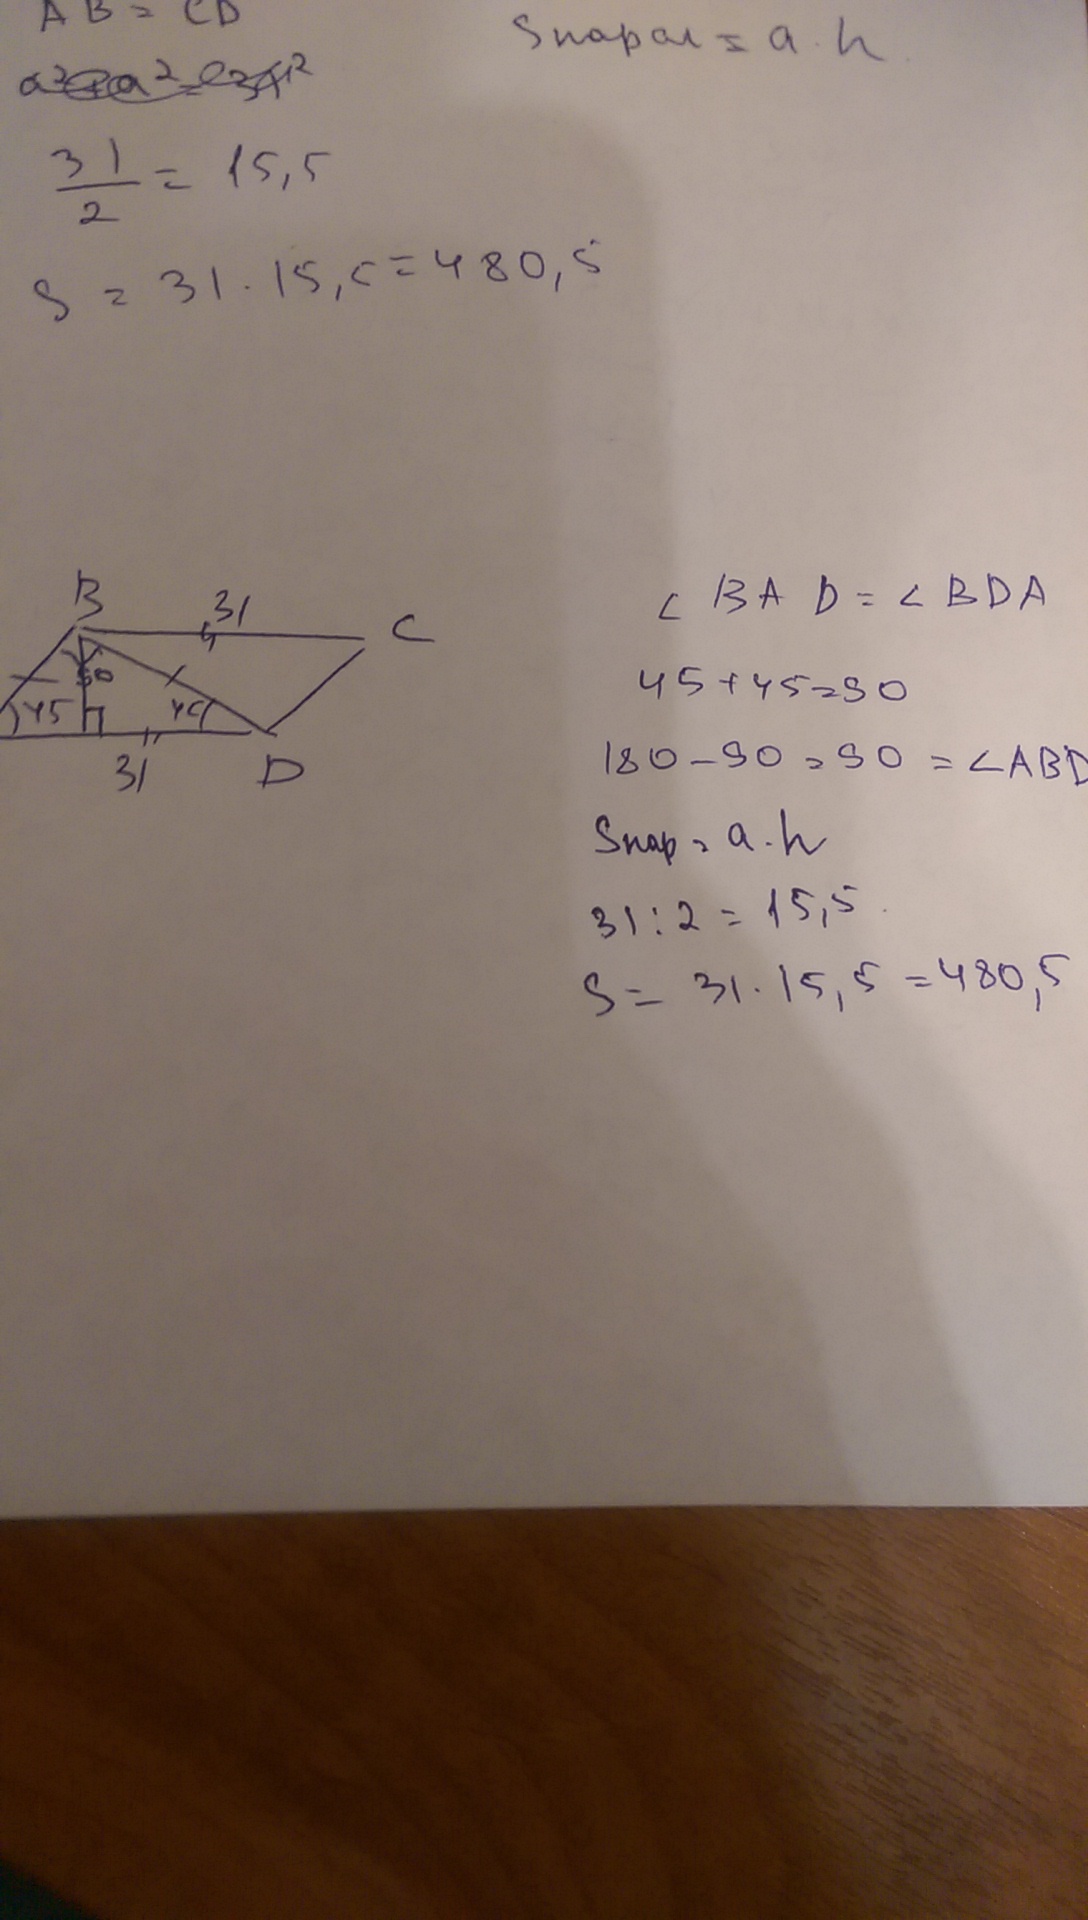 AB = CD
Sпарал = a·h
31/2 = 15,5
S = 31·15,5=480,5
B
31
C
90
45
45
31
D
∠BAD=∠BDA
45+45=90
180-90=90=∠ABD
Sпар=a·h
31:2=15,5
S=31·15,5=480,5